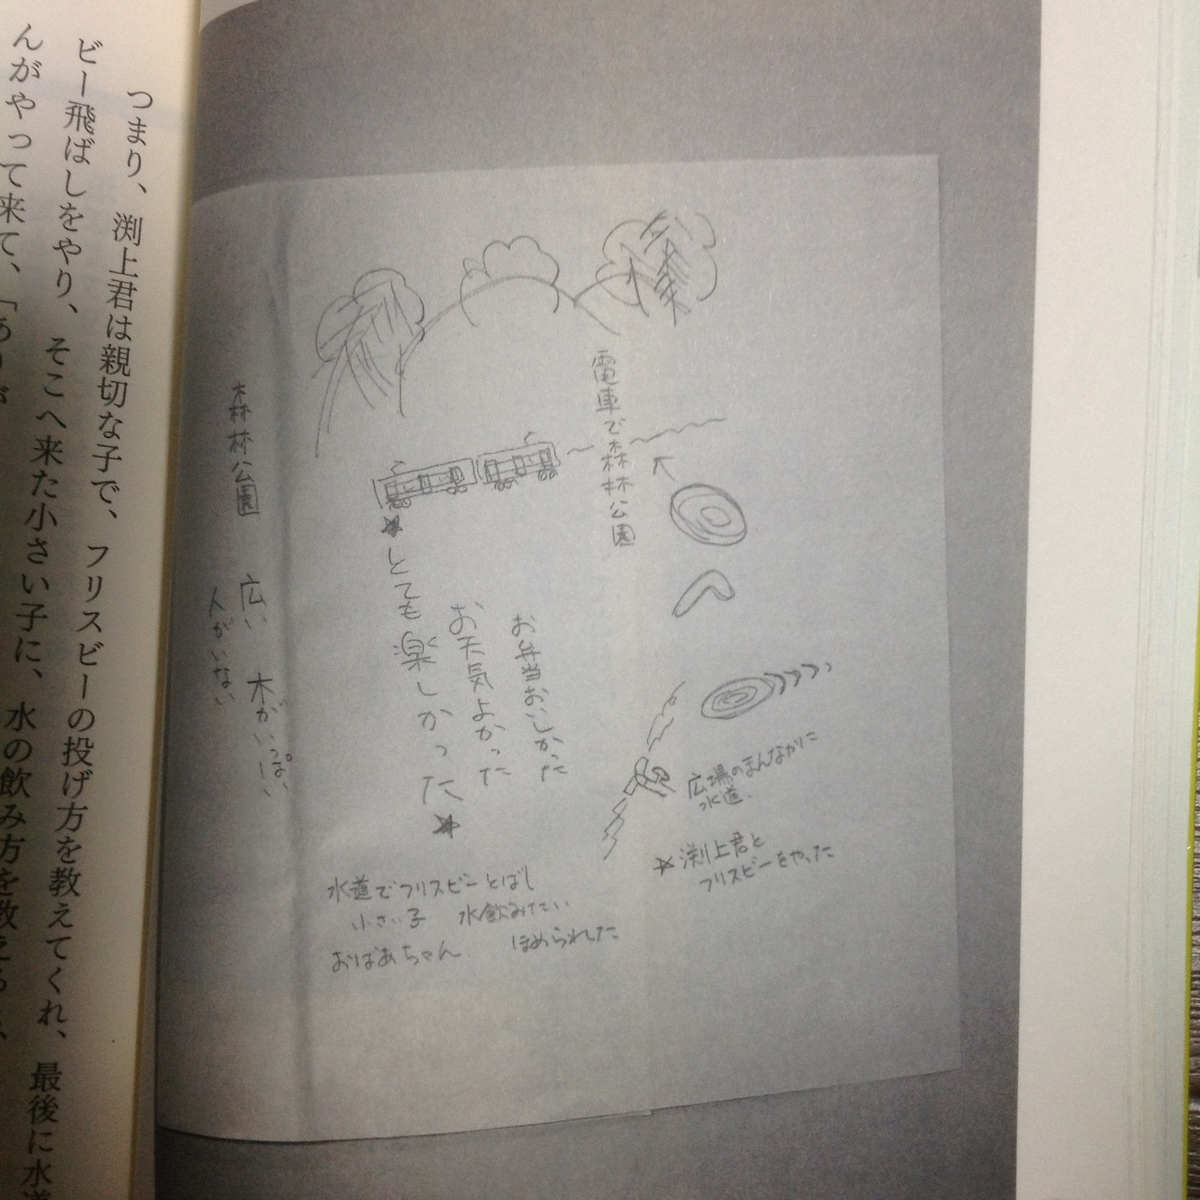 つまり、渕上君は親切な子で、フリスビーの投げ方を教えてくれ、最後に水道
ビー飛ばしをやり、そこへ来た小さい子に、水の飲み方を教える
んがやって来て、「あ
電車で森林公園
お弁当おいしかった
お天気よかった
とても楽しかった
森林公園 広い 木がいっぱい
人がいない
広場のまんなかに
水道.
渕上君と
フリスビーをやった
水道でフリスビーとばし
小さい子 水飲みたい
おばあちゃん ほめられた